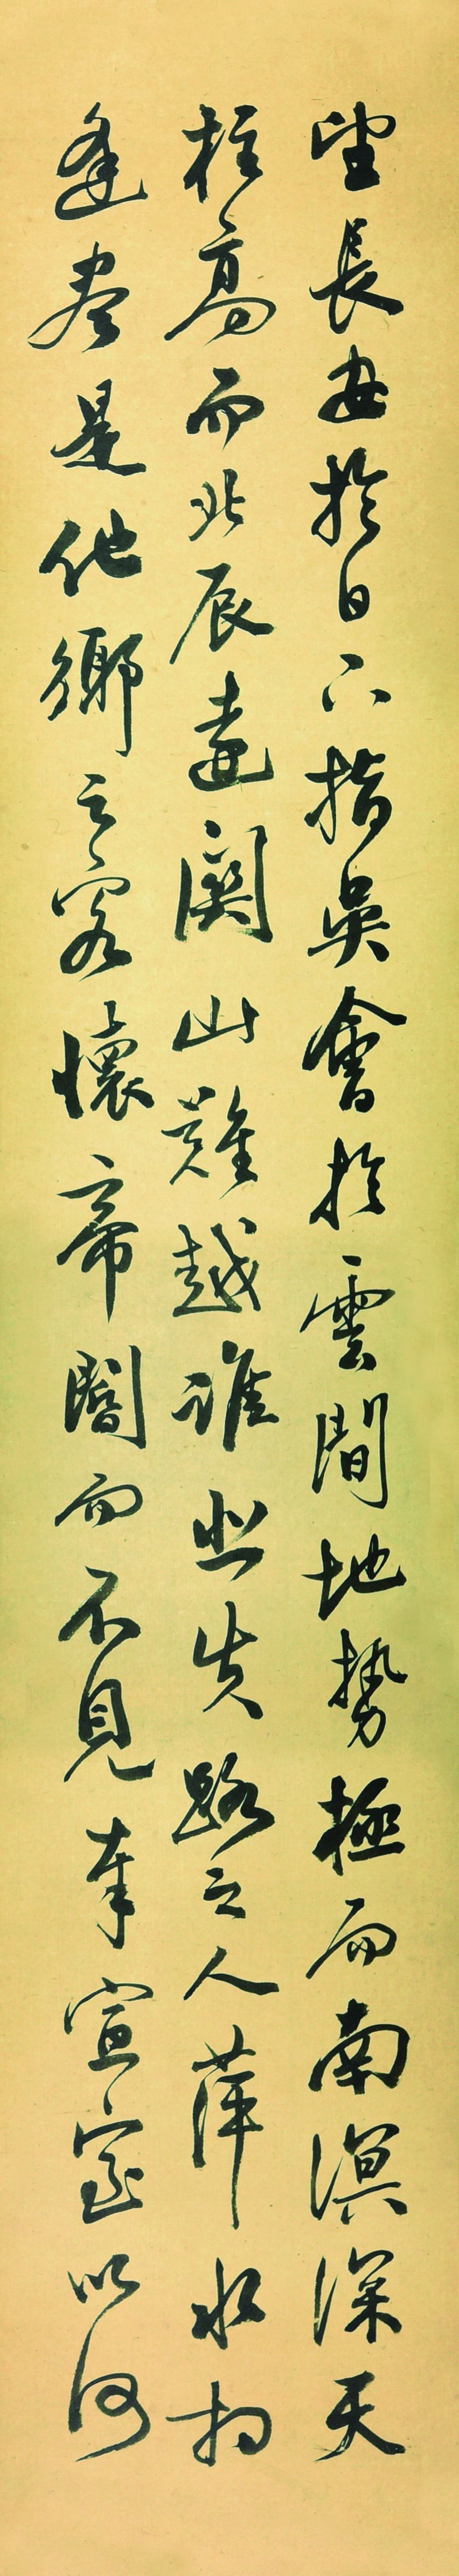 望長安於日下指吳會於雲間地勢極而南溟深天
柱高而北辰遠關山難越誰悲失路之人萍水相
逢盡是他鄉之客懷帝閽而不見奉宣室以何